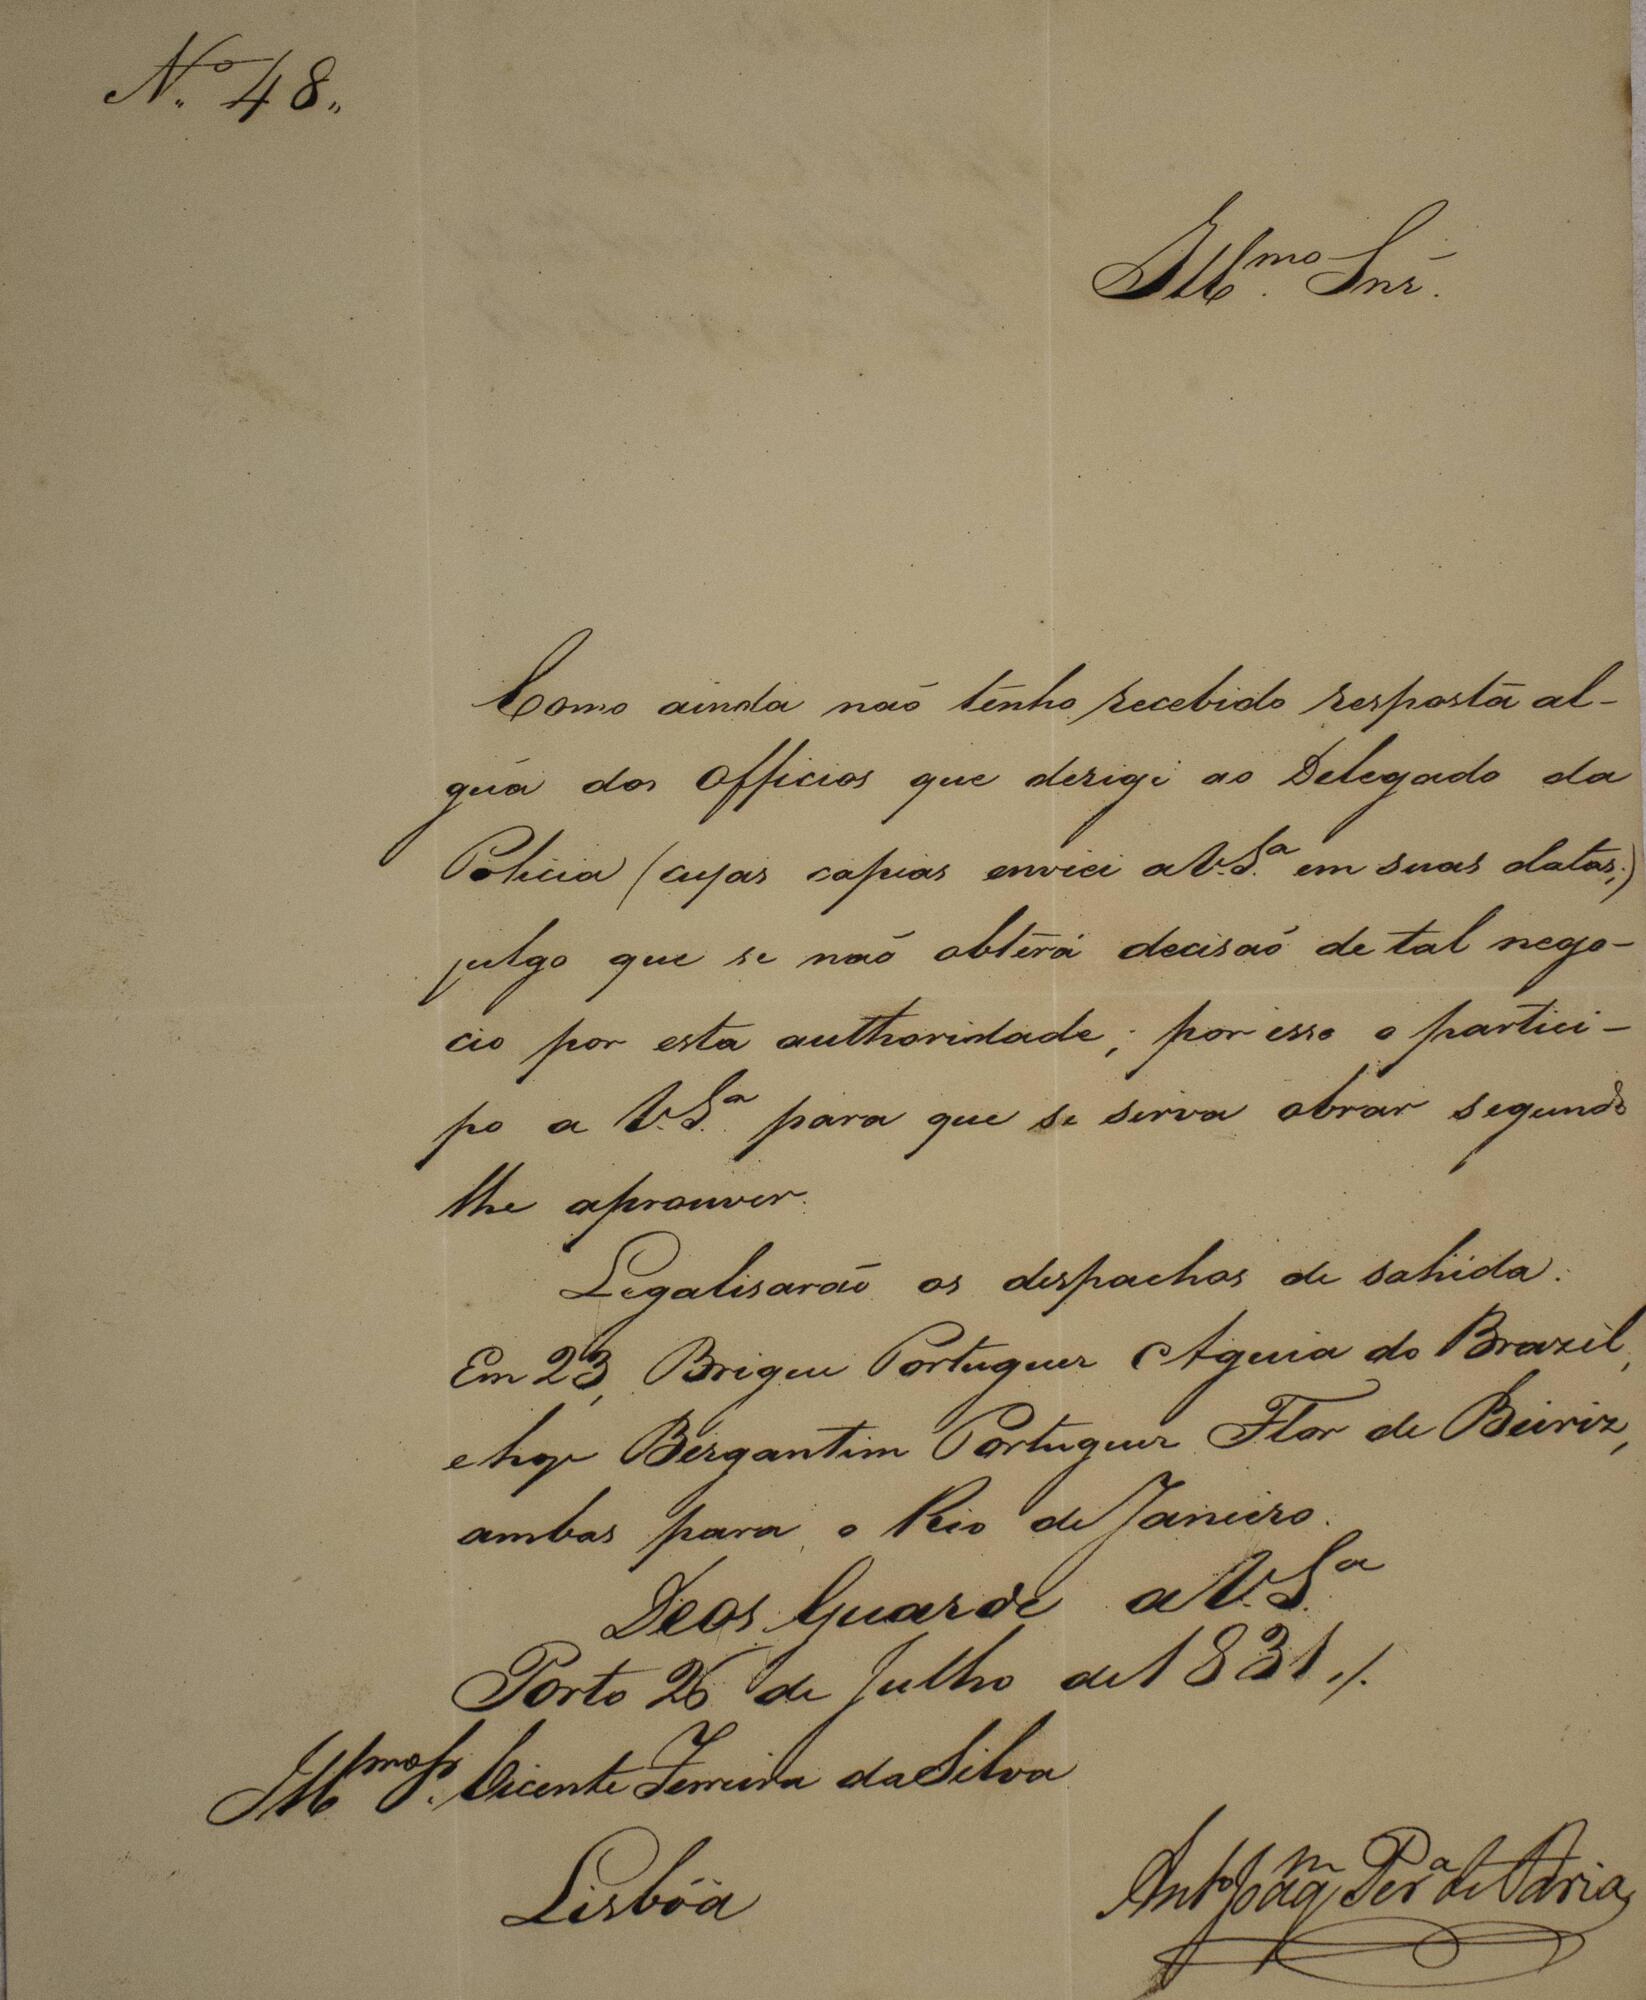 Nº 48„
Illmo. Snr.
Como ainda naõ tenho recebido resposta al-
guã dos Officios que derigi ao Delegado da
Policia (cujas copias enviei a V. Sª. em suas datas,)
julgo que se naõ obterá decisaõ de tal nego-
cio por esta authoridade; por isso o partici-
po a V. Sª. para que se sirva obrar segundo
lhe aprouver.
Legalisaraõ os despachos de sahida.
Em 23, Brigue Portuguez Aguia do Brazil,
e hoje Bergantim Portuguez Flor de Beiriz,
ambos para o Rio de Janeiro.
Deos Guarde a V. Sª.
Porto 26 de Julho de 1831 ./.
Illmo Sr. Vicente Ferreira da Silva
Lisbôa
Antº Joaqm Perª de